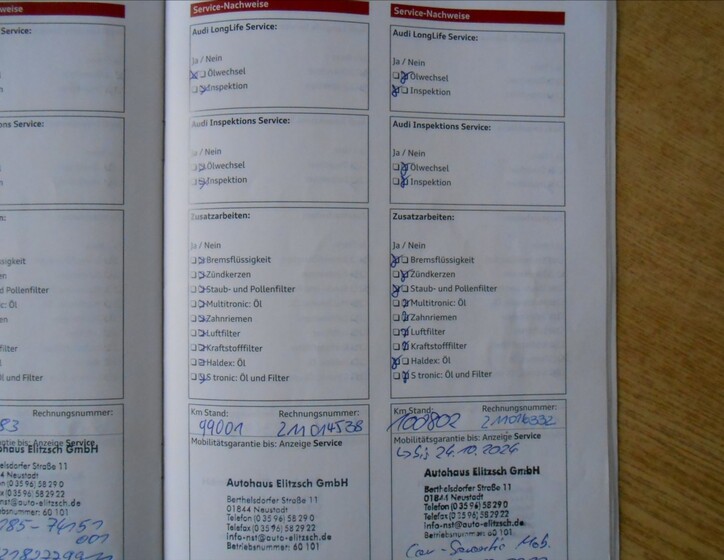 weise
Service:
ons Service:
n:
sigkeit
n
nd Pollenfilter
: Öl
en
ilter
Öl und Filter
83
Rechnungsnummer:
ntie bis: Anzeige Service
Autohaus Elitzsch GmbH
thelsdorfer Straße 11
44 Neustadt
on (0 35 96) 58 29 0
fax (0 35 96) 58 29 22
o-nst@auto-elitzsch.de
ebsnummer: 60 101
Service-Nachweise
Audi LongLife Service:
Ja / Nein
Ölwechsel
Inspektion
Audi Inspektions Service:
Ja / Nein
Ölwechsel
Inspektion
Zusatzarbeiten:
Ja / Nein
Bremsflüssigkeit
Zündkerzen
Staub- und Pollenfilter
Multitronic: Öl
Zahnriemen
Luftfilter
Kraftstofffilter
Haldex: Öl
S tronic: Öl und Filter
Km Stand: Rechnungsnummer:
99001 21014538
Mobilitätsgarantie bis: Anzeige Service
Autohaus Elitzsch GmbH
Berthelsdorfer Straße 11
01844 Neustadt
Telefon (0 35 96) 58 29 0
Telefax (0 35 96) 58 29 22
info-nst@auto-elitzsch.de
Betriebsnummer: 60 101
Service-Nachweise
Audi LongLife Service:
Ja / Nein
Ölwechsel
Inspektion
Audi Inspektions Service:
Ja / Nein
Ölwechsel
Inspektion
Zusatzarbeiten:
Ja / Nein
Bremsflüssigkeit
Zündkerzen
Staub- und Pollenfilter
Multitronic: Öl
Zahnriemen
Luftfilter
Kraftstofffilter
Haldex: Öl
S tronic: Öl und Filter
Km Stand: Rechnungsnummer:
100802 21016332
Mobilitätsgarantie bis: Anzeige Service
bis 24.10.2024
Autohaus Elitzsch GmbH
Berthelsdorfer Straße 11
01844 Neustadt
Telefon (0 35 96) 58 29 0
Telefax (0 35 96) 58 29 22
info-nst@auto-elitzsch.de
Betriebsnummer: 60 101